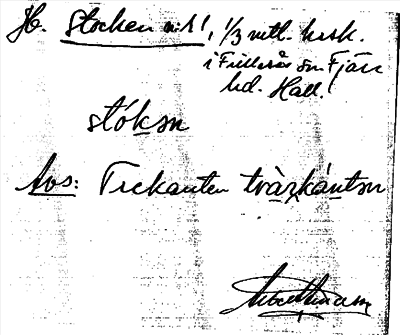 Jb. Stocken nr 1, 1/3 mtl. krsk.
i Frillesås sn. Fjäre
hd. Hall.
stókən
Avs: Trekanten trὰ̱rkántən